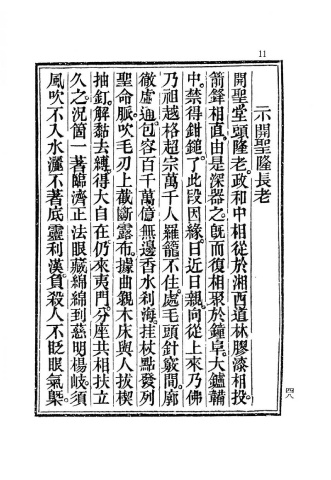 11
示開聖隆長老
開聖堂頭隆老。政和中相從於湘西道林膠漆相投。
箭鋒相直。由是深器之。既而復相聚於鍾阜。大鑪鞴
中。禁得鉗鎚。了此段因緣。日近日親。向從上來乃佛
乃祖越格超宗萬千人羅籠不住處。毛頭針竅間。廓
徹虛通。包容百千萬億無邊香水剎海。拄杖點發列
聖命脈。吹毛刃上截斷露布。據曲彔木床。與人拔楔
抽釘。解黏去縛。得大自在。仍來夷門。分座共相扶立
久之。況箇一著臨濟正法眼藏。綿綿到慈明楊岐。須
風吹不入水灑不著底靈利漢。負殺人不眨眼氣槩
四八